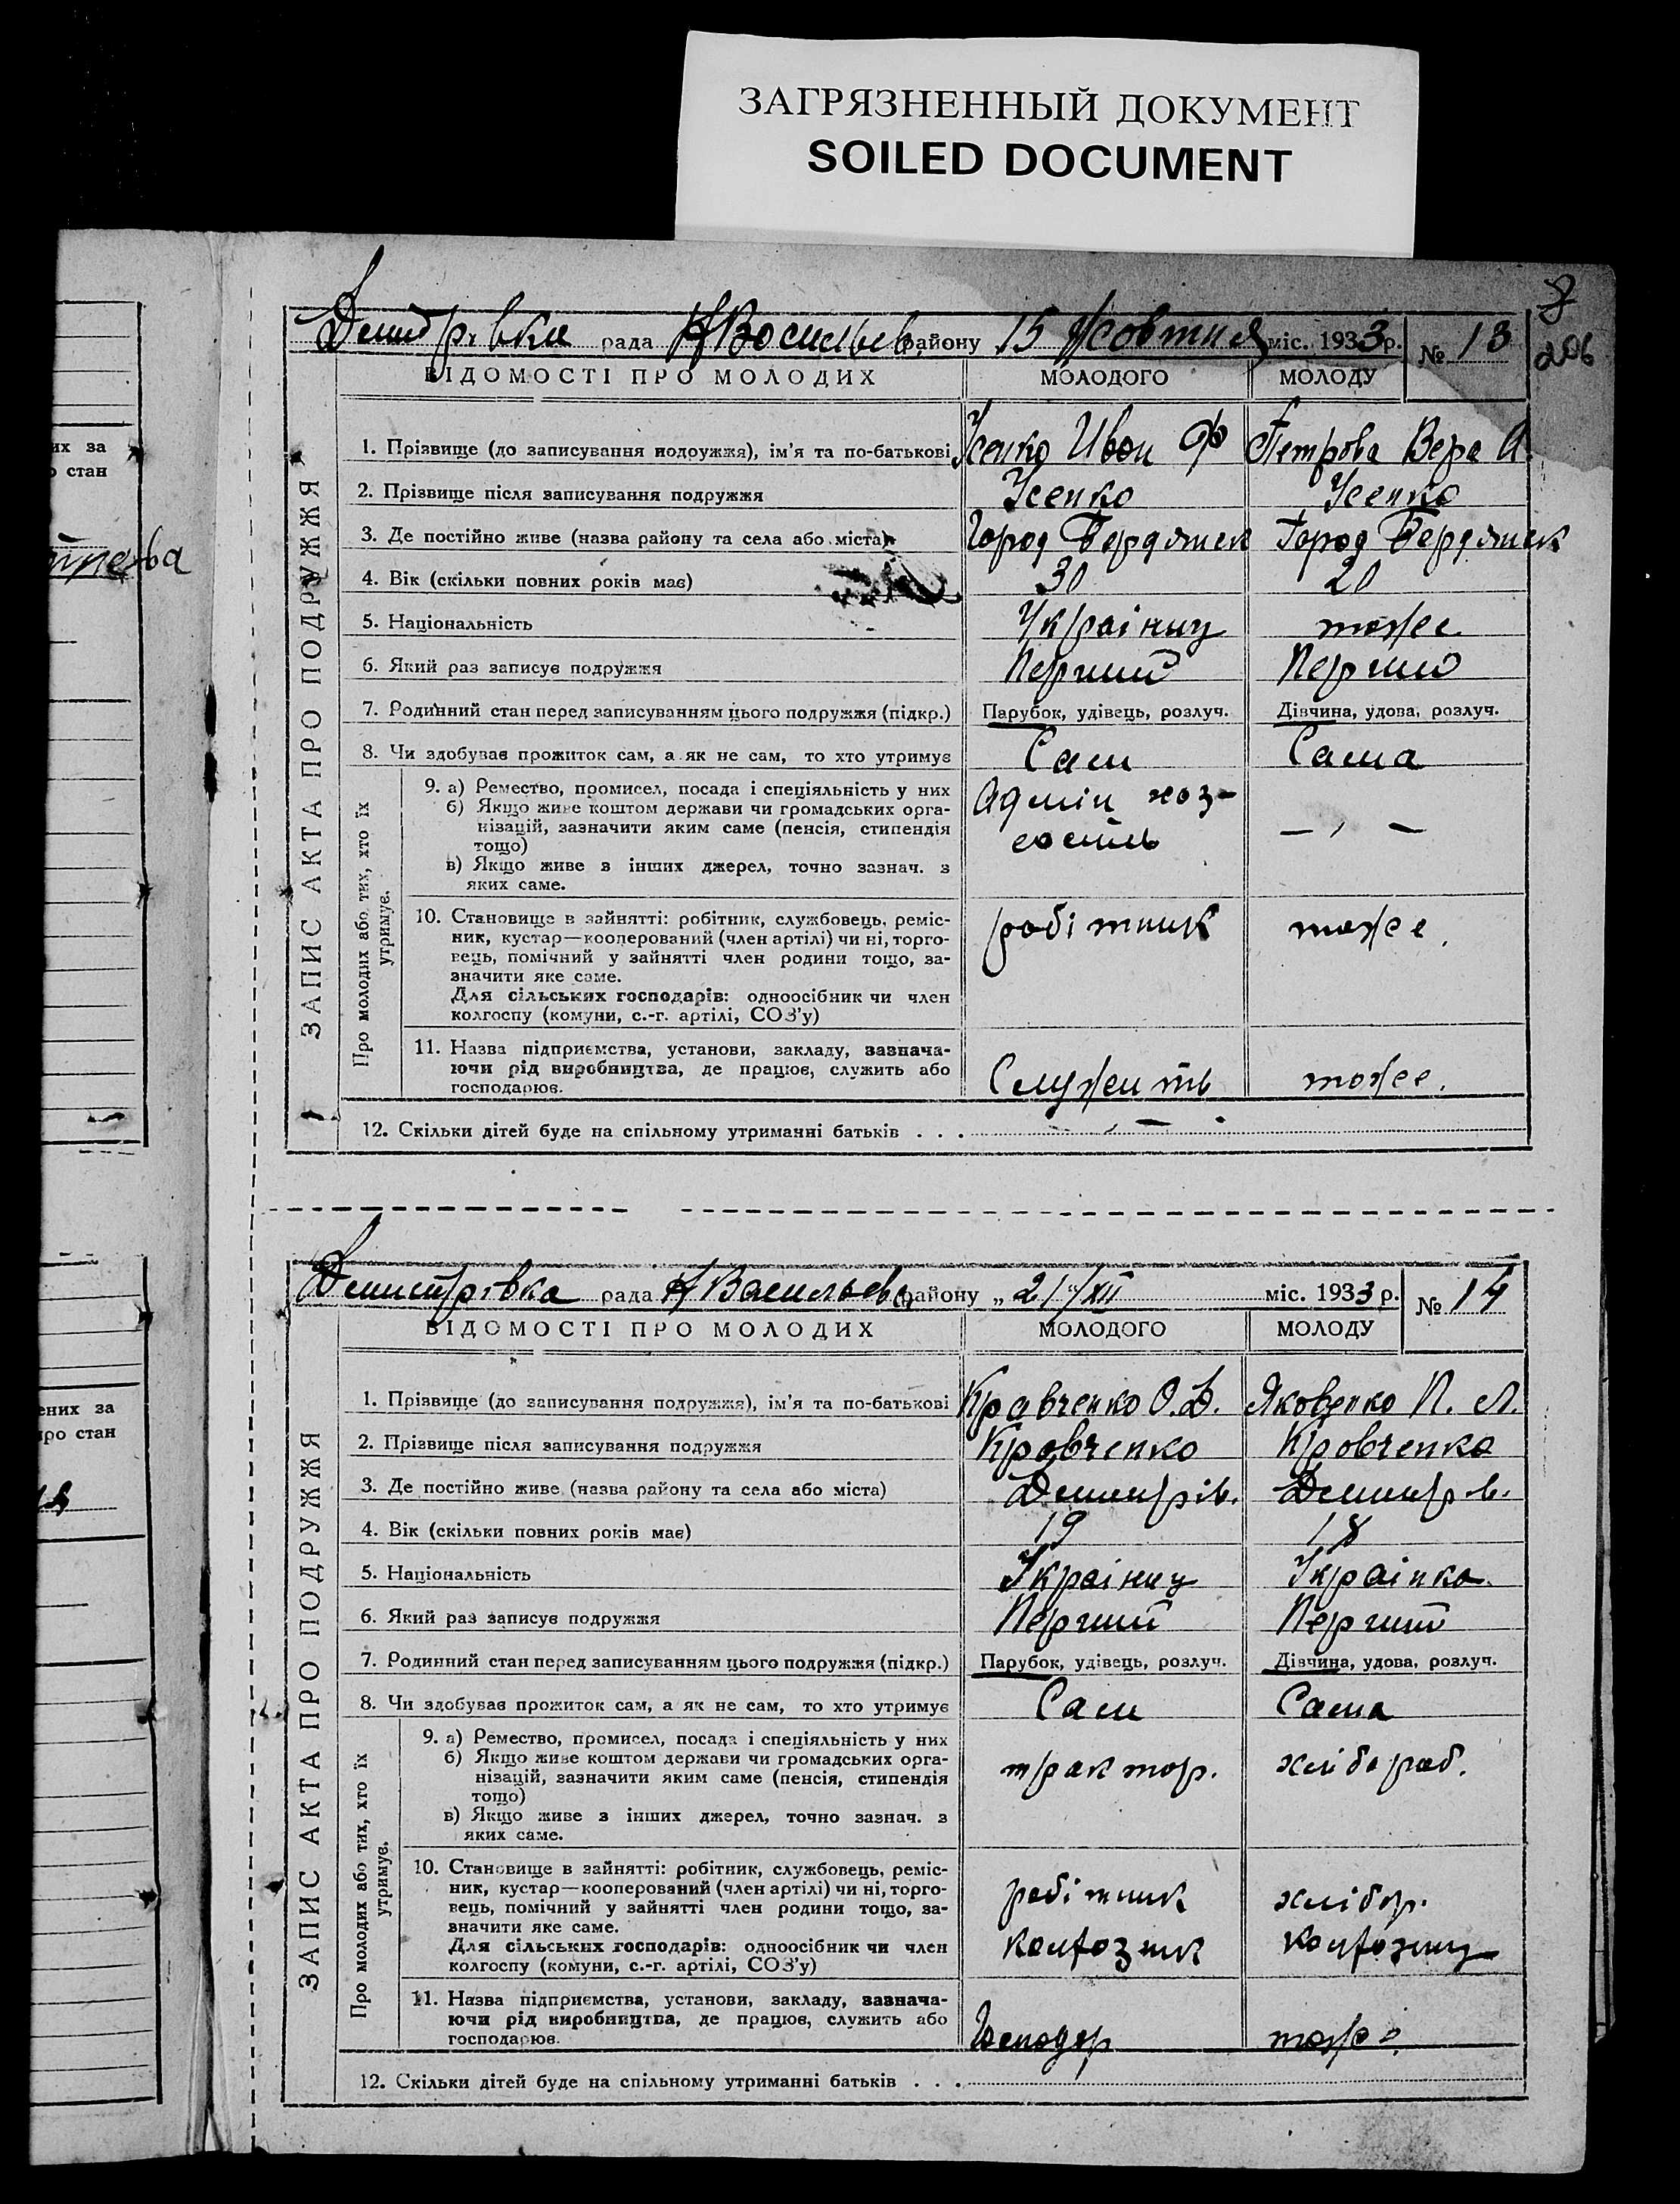 ЗАГРЯЗНЕННЫЙ ДОКУМЕНТ
SOILED DOCUMENT
206
их за
стан
Дмитрівка рада НВасильев району 15 Жовтня міс. 1933 р. № 13
ВІДОМОСТІ ПРО МОЛОДИХ МОЛОДОГО МОЛОДУ
ЗАПИС АКТА ПРО ПОДРУЖЖЯ
1. Прізвище (до записування подружжя), ім'я та по-батькові Усенко Иван Ф Петрова Вера А.
2. Прізвище після записування подружжя Усенко Усенко
3. Де постійно живе (назва району та села або міста) Город Бердянск Город Бердянск
4. Вік (скільки повних років має) 30 20
5. Національність Українец тоже
6. Який раз записує подружжя Перший Перший
7. Родинний стан перед записуванням цього подружжя (підкр.) Парубок, удівець, розлуч. Дівчина, удова, розлуч.
8. Чи здобував прожиток сам, а як не сам, то хто утримує Сам Сама
Про молодих або тих, хто їх утримує.
9. а) Ремество, промисел, посада і спеціяльність у них Адмін хоз-
б) Якщо живе коштом держави чи громадських орга-
нізацій, зазначити яким саме (пенсія, стипендія — „ —
тощо)
в) Якщо живе з інших джерел, точно зазнач. з
яких саме.
10. Становище в зайнятті: робітник, службовець, реміс- робітник тоже.
ник, кустар—кооперований (член артілі) чи ні, торго-
вець, помічний у зайнятті член родини тощо, за-
значити яке саме.
Для сільських господарів: одноосібник чи член
колгоспу (комуни, с.-г. артілі, СОЗ'у)
11. Назва підприємства, установи, закладу, зазнача-
ючи рід виробництва, де працює, служить або
господарює. Служить тоже.
12. Скільки дітей буде на спільному утриманні батьків . . . —
ених за
ро стан
Дмитрівка рада НВасильев району „ 21"/XII міс. 1933 р. № 14
ВІДОМОСТІ ПРО МОЛОДИХ МОЛОДОГО МОЛОДУ
ЗАПИС АКТА ПРО ПОДРУЖЖЯ
1. Прізвище (до записування подружжя), ім'я та по-батькові Кравченко О. Д. Яковенко П. Л.
2. Прізвище після записування подружжя Кравченко Кравченко
3. Де постійно живе (назва району та села або міста) Дмитрів. Дмитрів.
4. Вік (скільки повних років має) 19 18
5. Національність Українец Українка
6. Який раз записує подружжя Перший Перший
7. Родинний стан перед записуванням цього подружжя (підкр.) Парубок, удівець, розлуч. Дівчина, удова, розлуч.
8. Чи здобував прожиток сам, а як не сам, то хто утримує Сам Сама
Про молодих або тих, хто їх утримує.
9. а) Ремество, промисел, посада і спеціяльність у них
б) Якщо живе коштом держави чи громадських орга- трактор. хлібороб.
нізацій, зазначити яким саме (пенсія, стипендія
тощо)
в) Якщо живе з інших джерел, точно зазнач. з
яких саме.
10. Становище в зайнятті: робітник, службовець, реміс-
ник, кустар—кооперований (член артілі) чи ні, торго- робітник хлібор.
вець, помічний у зайнятті член родини тощо, за-
значити яке саме.
Для сільських господарів: одноосібник чи член
колгоспу (комуни, с.-г. артілі, СОЗ'у)
11. Назва підприємства, установи, закладу, зазнача-
ючи рід виробництва, де працює, служить або
господарює. Господар тоже.
12. Скільки дітей буде на спільному утриманні батьків . . .